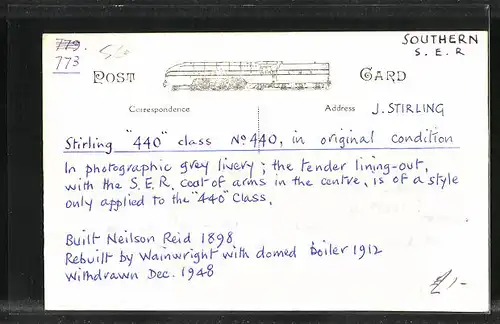 779.
773
560
SOUTHERN
S. E. R
POST CARD
Correspondence
Address
J. STIRLING
Stirling "440" class No 440, in original condition
In photographic grey livery; the tender lining-out,
with the S.E.R. coat of arms in the centre, is of a style
only applied to the "440" Class.
Built Neilson Reid 1898
Rebuilt by Wainwright with domed boiler 1912
Withdrawn Dec. 1948
£1-